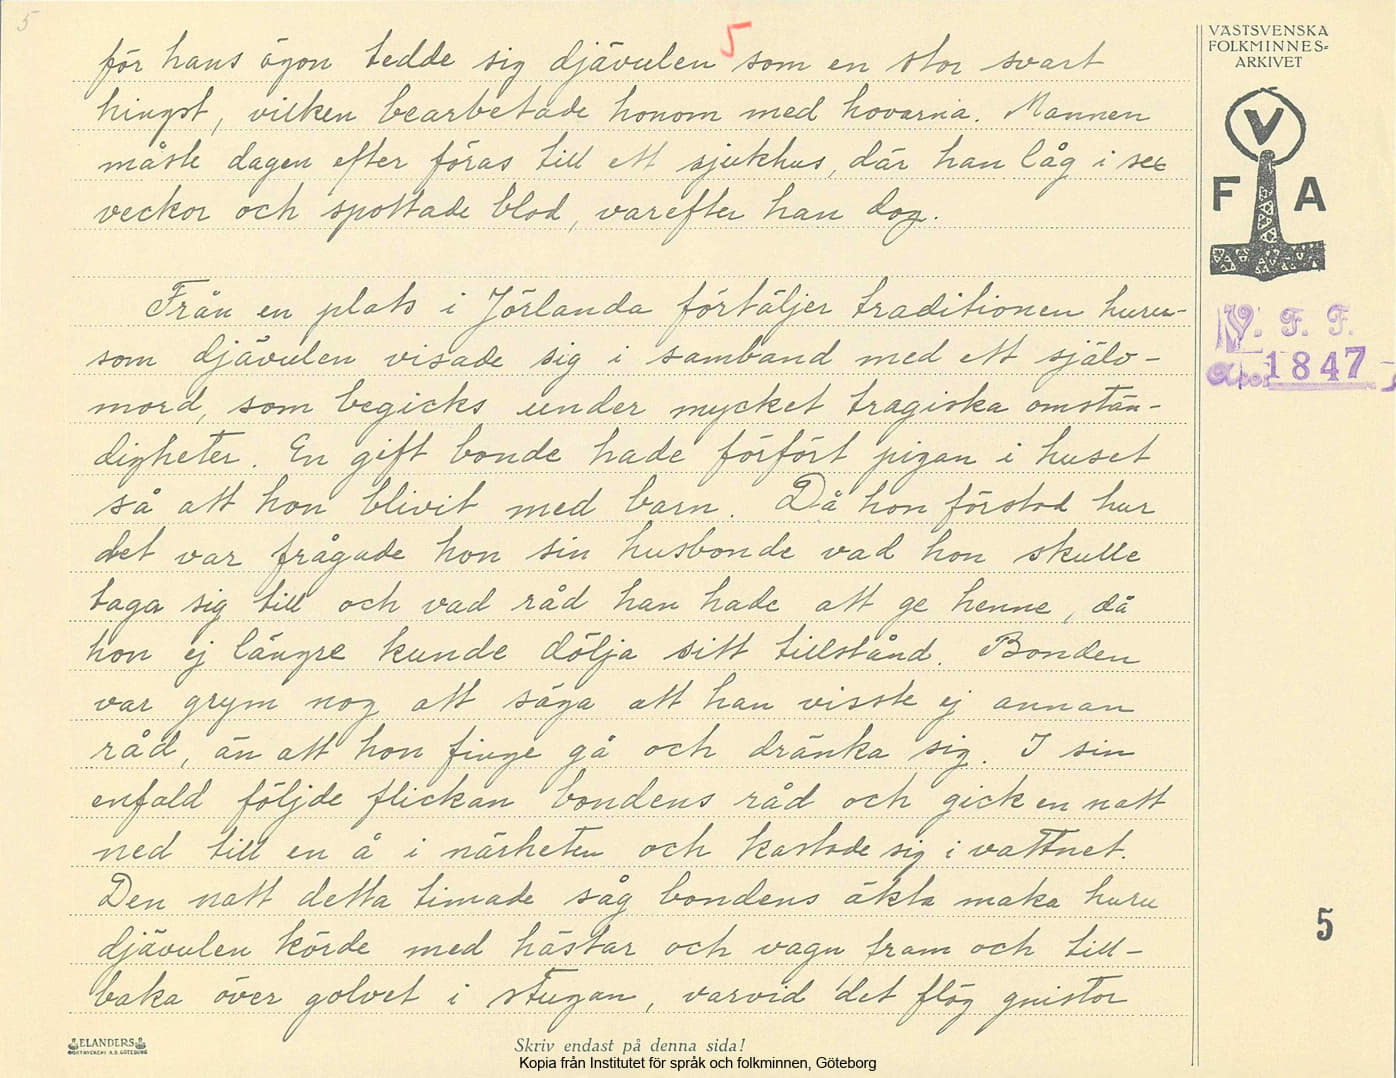 5
5
för hans ögon tedde sig djävulen som en stor svart
hingst, vilken bearbetade honom med hovarna. Mannen
måste dagen efter föras till ett sjukhus, där han låg i sex
veckor och spottade blod, varefter han dog.
Från en plats i Jörlanda förtäljer traditionen huru-
som djävulen visade sig i samband med ett själv-
mord, som begicks under mycket tragiska omstän-
digheter. En gift bonde hade förfört pigan i huset
så att hon blivit med barn. Då hon förstod hur
det var frågade hon sin husbonde vad hon skulle
taga sig till och vad råd han hade att ge henne, då
hon ej längre kunde dölja sitt tillstånd. Bonden
var grym nog att säga att han visste ej annan
råd, än att hon finge gå och dränka sig. I sin
enfald följde flickan bondens råd och gick en natt
ned till en å i närheten och kastade sig i vattnet.
Den natt detta timade såg bondens äkta maka huru
djävulen körde med hästar och vagn fram och till-
baka över golvet i stugan, varvid det flög gnistor
VÄSTSVENSKA
FOLKMINNES-
ARKIVET
V
F A
V. F. F.
1847
5
ELANDERS
Skriv endast på denna sida!
Kopia från Institutet för språk och folkminnen, Göteborg